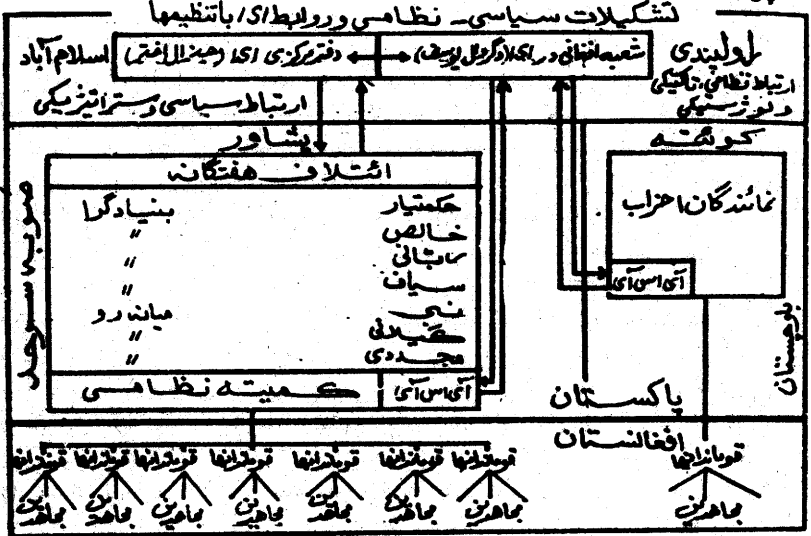 تشکیلات سیاسی - نظامی و روابط ای/ با تنظیمها
راولپندی
شعبه افغانی در
دفتر مرکزی
اسلام آباد
ارتباط نظامی، تاکتیکی
و لوژستیکی
ارتباط سیاسی و ستراتیژیکی
کوئته
پشاور
ائتلاف هفتگانه
حکمتیار بنیادگرا
خالص "
ربانی "
سیاف "
نبی میانه رو
گیلانی "
مجددی "
کمیته نظامی
آی اس آی
نمائندگان احزاب
آی اس آی
صوبه سرحد
بلوچستان
پاکستان
افغانستان
قوماندانها قوماندانها قوماندانها قوماندانها قوماندانها قوماندانها قوماندانها قوماندانها
مجاهدین مجاهدین مجاهدین مجاهدین مجاهدین مجاهدین مجاهدین مجاهدین